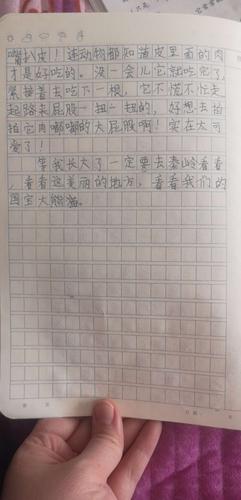 嘴扒皮！连动物都知道皮里面的肉
才是好吃的。没一会儿它就吃完了，
紧接着去吃下一根，它不慌不忙走
起路来屁股一扭一扭的，好想去拍
拍它肉嘟嘟的大屁股啊！实在太可
爱了！
等我长大了一定要去秦岭看看
，看看这美丽的地方，看看我们的
国宝大熊猫。